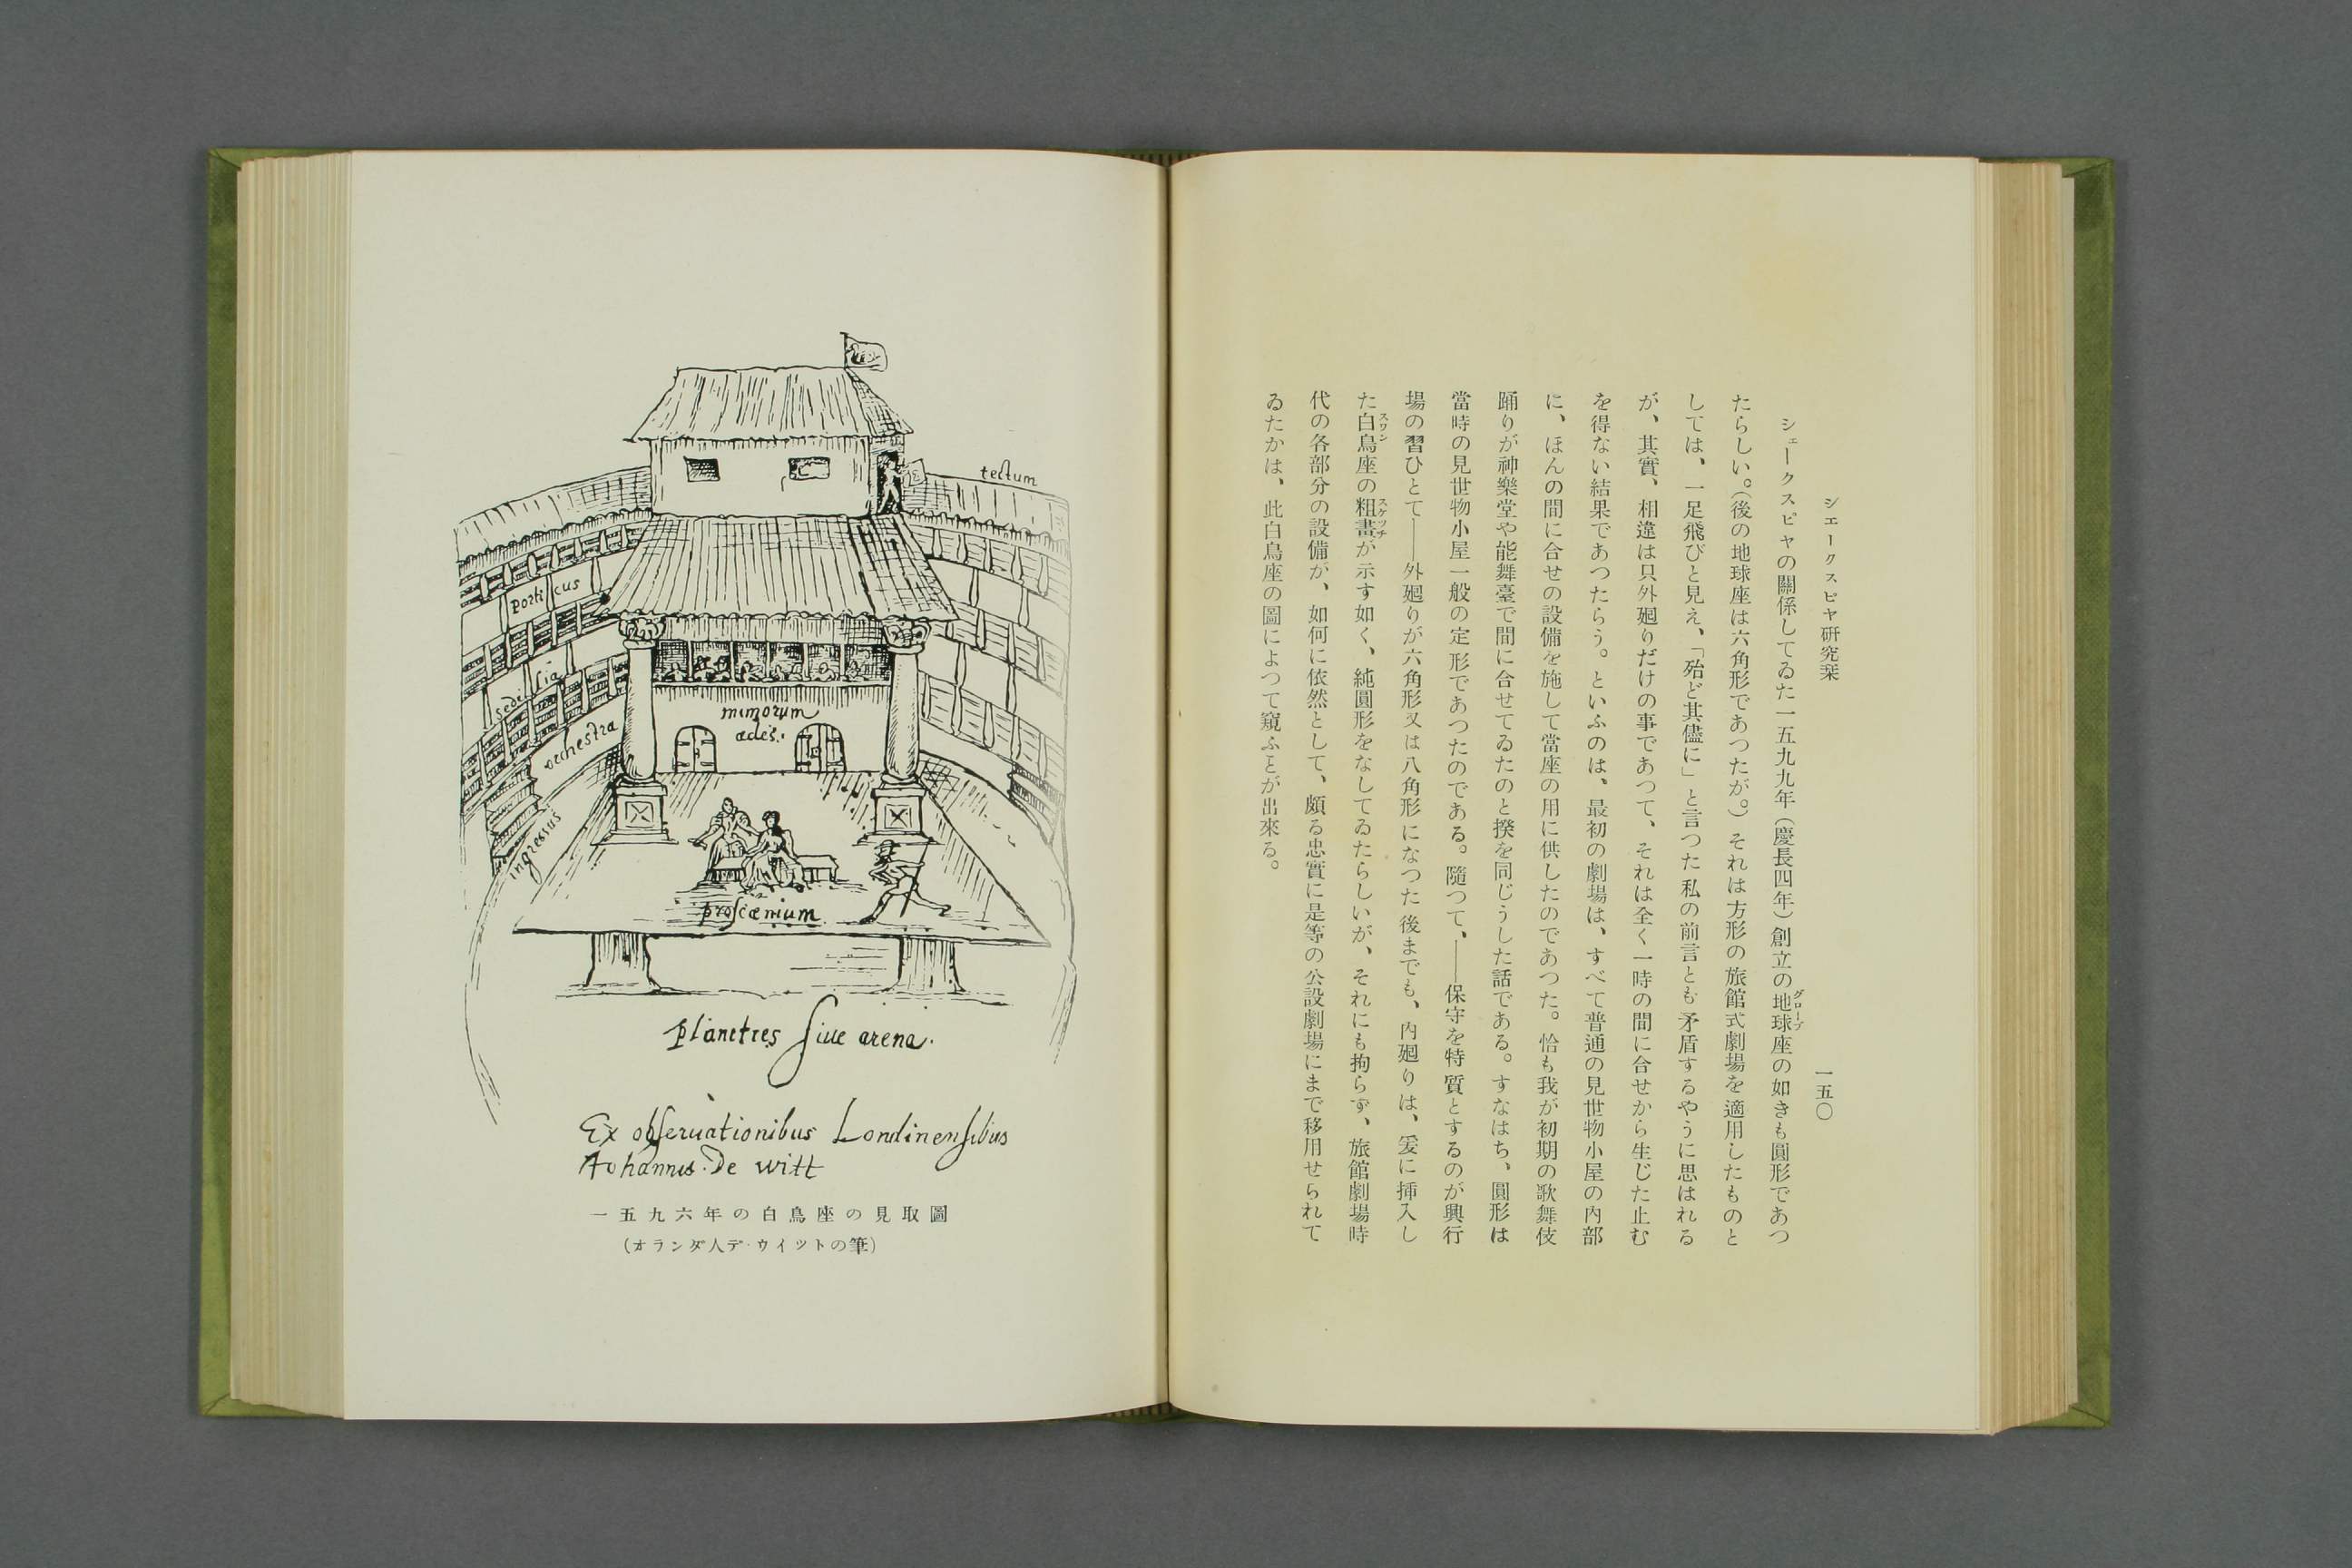 シエークスピヤ研究栞
一五〇
シェークスピヤの關係してゐた一五九九年（慶長四年）創立の地球座の如きも圓形であつ
グローブ
たらしい。（後の地球座は六角形であつたが。）それは方形の旅館式劇場を適用したものと
しては、一足飛びと見え、「殆ど其儘に」と言つた私の前言とも矛盾するやうに思はれる
が、其實、相違は只外廻りだけの事であつて、それは全く一時の間に合せから生じた止む
を得ない結果であつたらう。といふのは、最初の劇場は、すべて普通の見世物小屋の内部
に、ほんの間に合せの設備を施して當座の用に供したのであつた。恰も我が初期の歌舞伎
踊りが神樂堂や能舞臺で間に合せてゐたのと揆を同じうした話である。すなはち、圓形は
當時の見世物小屋一般の定形であつたのである。隨つて、――保守を特質とするのが興行
場の習ひとて――外廻りが六角形又は八角形になつた後までも、内廻りは、爰に挿入し
た白鳥座の粗畫が示す如く、純圓形をなしてゐたらしいが、それにも拘らず、旅館劇場時
スワン
スケッチ
代の各部分の設備が、如何に依然として、頗る忠實に是等の公設劇場にまで移用せられて
ゐたかは、此白鳥座の圖によつて窺ふことが出來る。
tectum
porticus
sedilia
orchestra
mimorum
ædes.
ingressus
proscænium
planities siue arena.
Ex obseruationibus Londinensibus
Johannis De witt
一五九六年の白鳥座の見取圖
（オランダ人デ・ウイツトの筆）